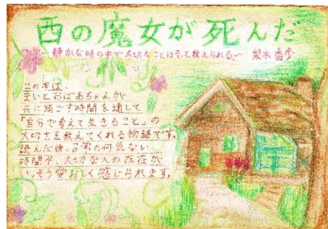 西の魔女が死んだ
〜静かな時の中で大切なことはそっと教えられる〜 梨木香歩
この本は、
まいとおばあちゃんが
共に過ごす時間を通して
「自分で考えて生きること」の
大切さを教えてくれる物語です。
読んだ後、日常の何気ない
時間や、大切な人の存在が
いっそう愛おしく感じられます。